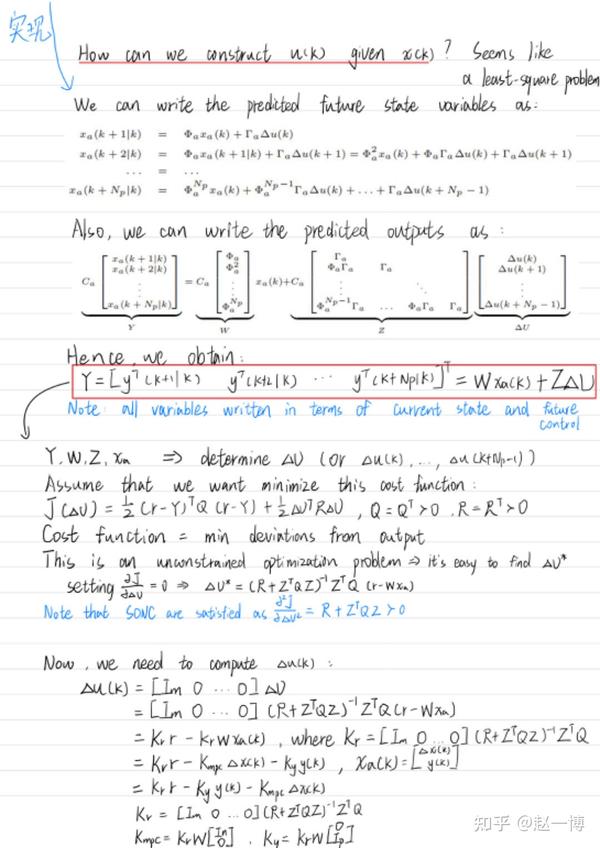 实现
How can we construct u(k) given x(k) ? Seems like
a least-square problem
We can write the predicted future state variables as:
x_a(k+1|k) = Φ_a x_a(k) + Γ_a Δu(k)
x_a(k+2|k) = Φ_a x_a(k+1|k) + Γ_a Δu(k+1) = Φ_a^2 x_a(k) + Φ_a Γ_a Δu(k) + Γ_a Δu(k+1)
... = ...
x_a(k+N_p|k) = Φ_a^{N_p} x_a(k) + Φ_a^{N_p-1} Γ_a Δu(k) + ... + Γ_a Δu(k+N_p-1)
Also, we can write the predicted outputs as :
C_a [x_a(k+1|k) x_a(k+2|k) ⋮ x_a(k+N_p|k)] = C_a [Φ_a Φ_a^2 ⋮ Φ_a^{N_p}] x_a(k) + C_a [Γ_a Φ_aΓ_a Γ_a ⋮ ⋱ Φ_a^{N_p-1}Γ_a ... Φ_aΓ_a Γ_a] [Δu(k) Δu(k+1) ⋮ Δu(k+N_p-1)]
Y W Z ΔU
Hence, we obtain:
Y = [y^T(k+1|k) y^T(k+2|k) ... y^T(k+Np|k)]^T = W x_a(k) + ZΔU
Note: all variables written in terms of current state and future
control
Y, W, Z, x_a ⇒ determine ΔU (or Δu(k), ..., Δu(k+Np-1))
Assume that we want minimize this cost function:
J(ΔU) = 1/2 (r-Y)^T Q (r-Y) + 1/2 ΔU^T R ΔU , Q = Q^T > 0 , R = R^T > 0
Cost function = min deviations from output
This is an unconstrained optimization problem ⇒ it's easy to find ΔU*
setting ∂J/∂ΔU = 0 ⇒ ΔU* = (R+Z^TQZ)^{-1} Z^TQ (r-Wx_a)
Note that SONC are satisfied as ∂²J/∂ΔU² = R+Z^TQZ > 0
Now, we need to compute Δu(k) :
Δu(k) = [Im 0 ... 0] ΔU
= [Im 0 ... 0] (R+Z^TQZ)^{-1} Z^TQ (r-Wx_a)
= Kr r - Kr W x_a(k) , where Kr = [Im 0 ... 0] (R+Z^TQZ)^{-1} Z^TQ
= Kr r - Kmpc Δx(k) - Ky y(k) , x_a(k) = [Δx(k) y(k)]
= Kr r - Ky y(k) - Kmpc Δx(k)
Kr = [Im 0 ... 0] (R+Z^TQZ)^{-1} Z^TQ
Kmpc = Kr W [In 0] , Ky = Kr W [0 Ip]
知乎 @赵一博